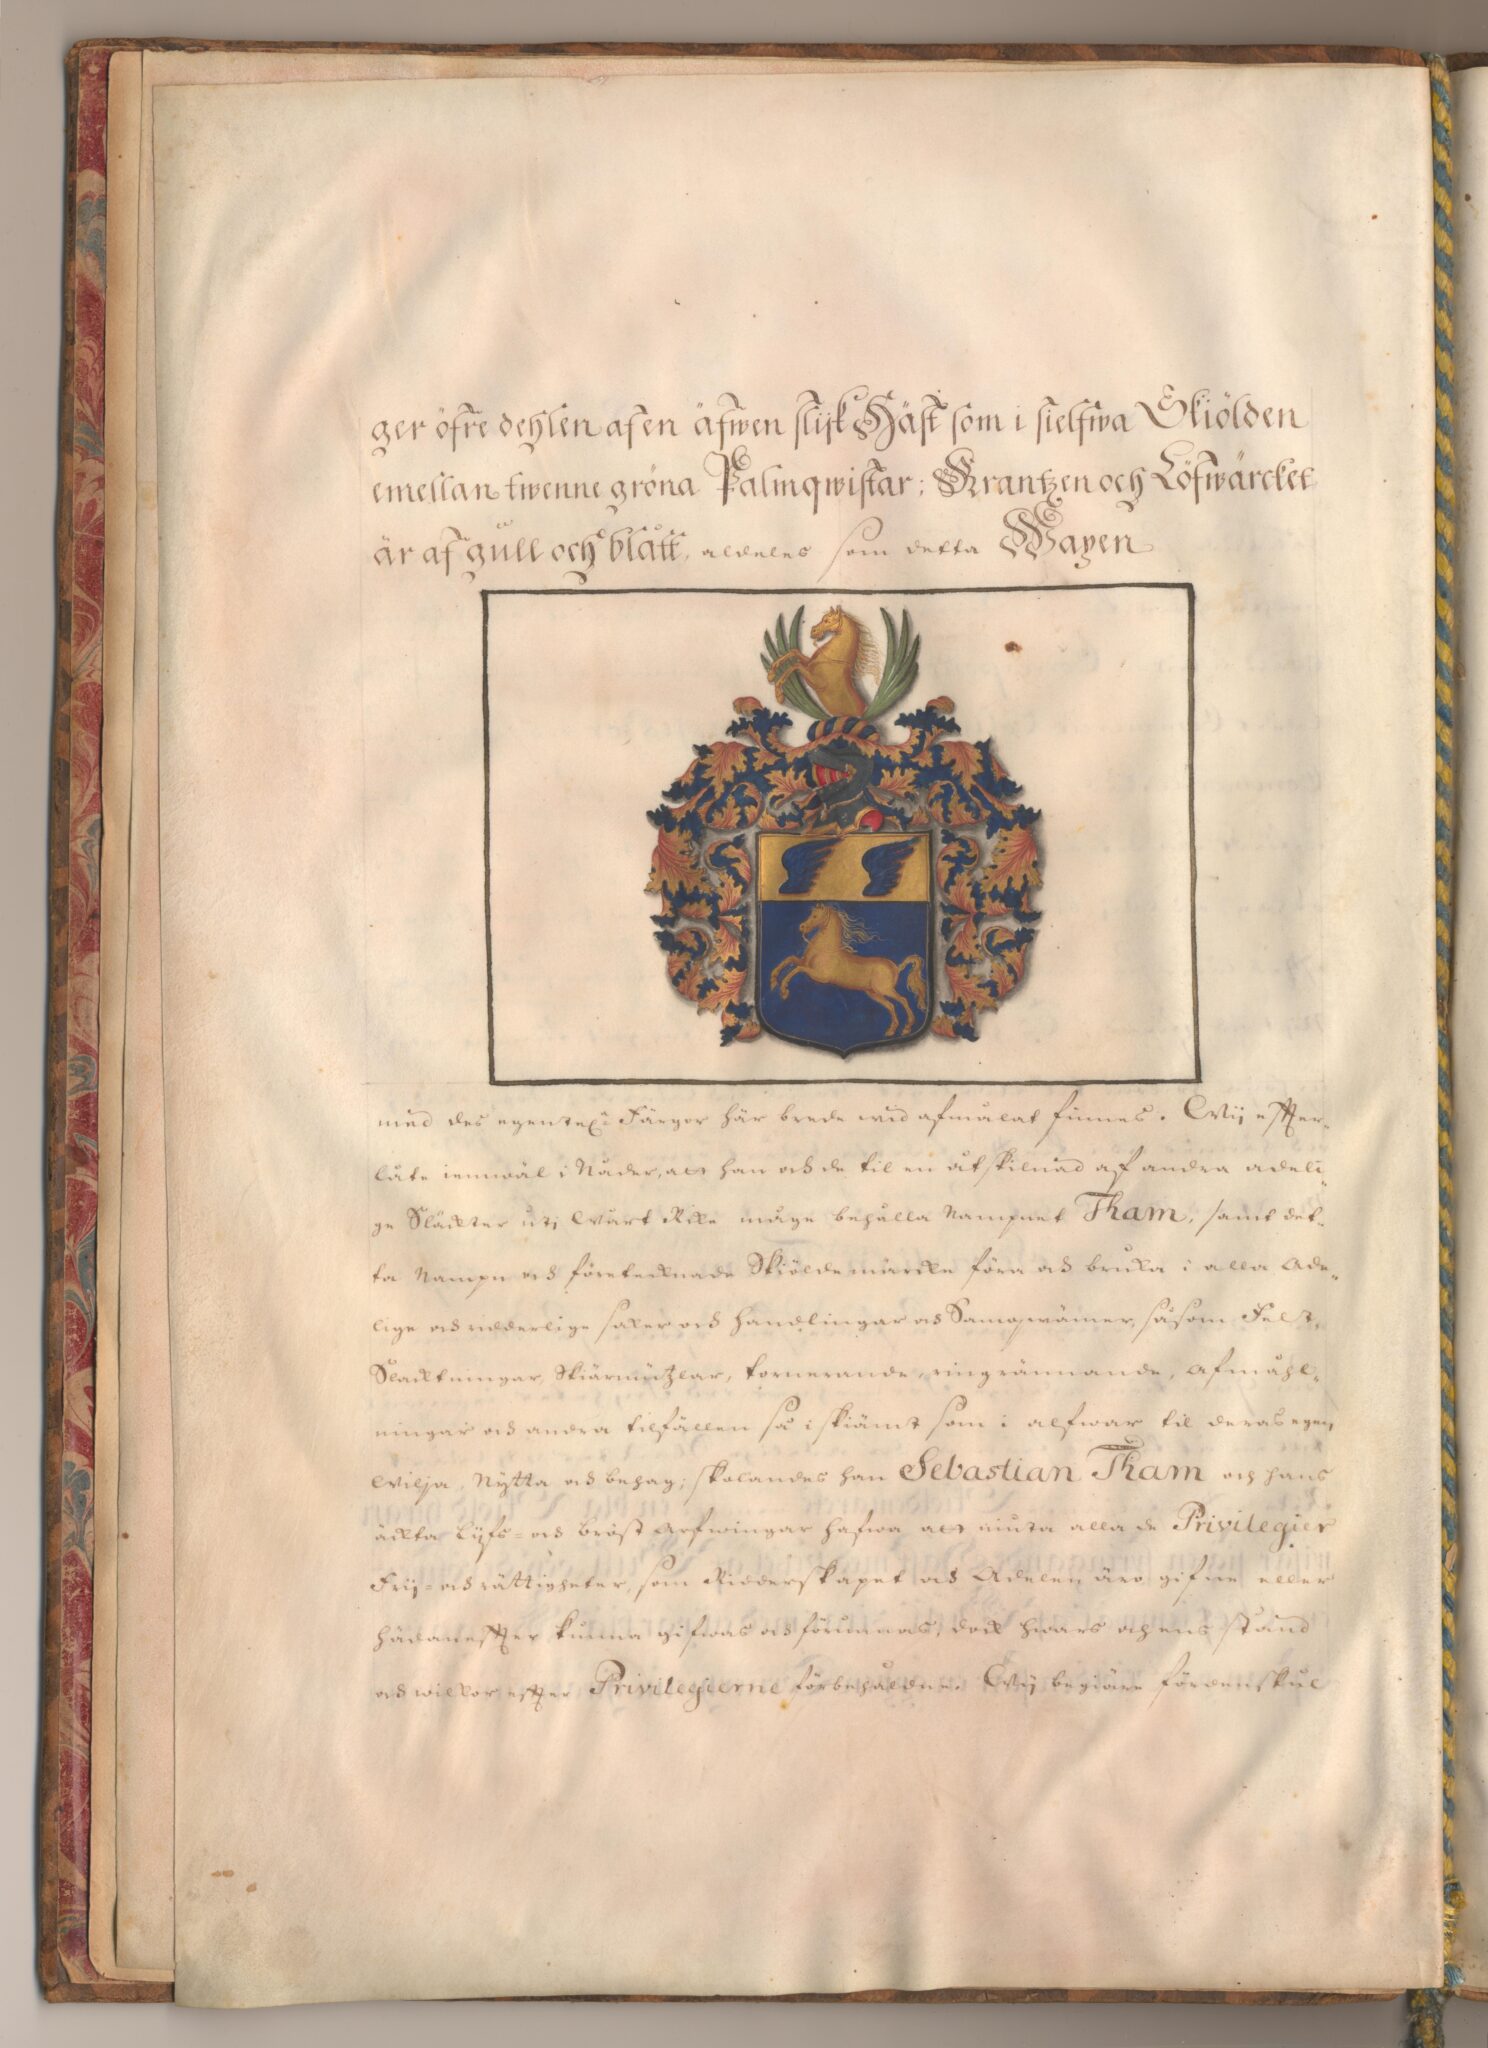 ger öfre dehlen af en äfwen slijk Häst som i sielfwa Skiölden
emellan twenne gröna Palmqwistar; Krantzen och Löfwärcket
är af gull och blått, aldeles som detta Wapen
med des egentel: Färgor här brede wid afmålat finnes. Wij effter-
låte iemwäl i Nåder, att han och de til en åtskilnad af andra adeli-
ge Släckter utj Wårt Rike måge behålla Nampnet Tham, samt det-
ta Nampn och företecknade Skiöldemärcke föra och bruka i alla Ade-
lige och ridderlige saker och handlingar och Samqwämer, såsom Felt,
Slacktningar, Skiärmützlar, tornerande, ringrännande, afmåhl-
ningar och andra tilfällen så i skiämt som i alfwar til deras egen
Wilja, Nytta och behag; skolandes han Sebastian Tham och hans
äckta Lijfs- och Bröst Arfwingar hafwa att niuta alla de Privilegier
Frij- och rättigheter, som Ridderskapet och Adelen äro gifne eller
hädaneffter kunna gifwas och förunnas, dock hwars och ens stånd
och wilkor effter Privilegierne förbehåldne. Wij begiäre fördenskul